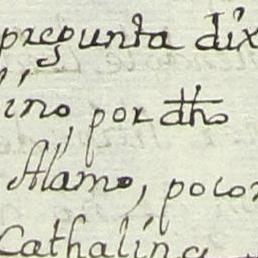 pregunta dix
lino, por dho
Alamo, pocor
Cathalina